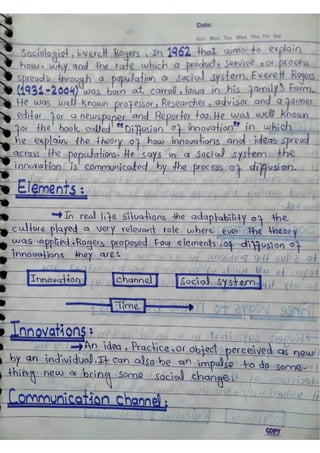 Date:
Sun Mon Tue Wed Thu Fri Sat
Sociologist, Everett Rogers, In 1962 that aims to explain
how, why and the rate which a product, service, or process
spreads through a population or social system. Everett Rogers
(1931-2004) was born at carroll, Iowa in his family's Farm.
He was well-known professor, Researcher, advisor and a former
editor for a newspaper and Reporter too. He was well known
for the book called "Diffusion of innovation" in which
he explain the theory of how innovations and ideas spread
across the populations. He says in a social system the
innovation is communicated by the process of diffusion.
Elements:
→ In real life situations the adaptability of the
culture played a very relevant role where ever the theory
was applied. Rogers proposed Four elements of diffusion of
innovations they are:
Innovation channel Social System
Time
Innovations:
→ An idea, Practice, or object perceived as new
by an individual. It can also be an impulse to do some-
thing new or bring some social change.
Communication channel:
COPY